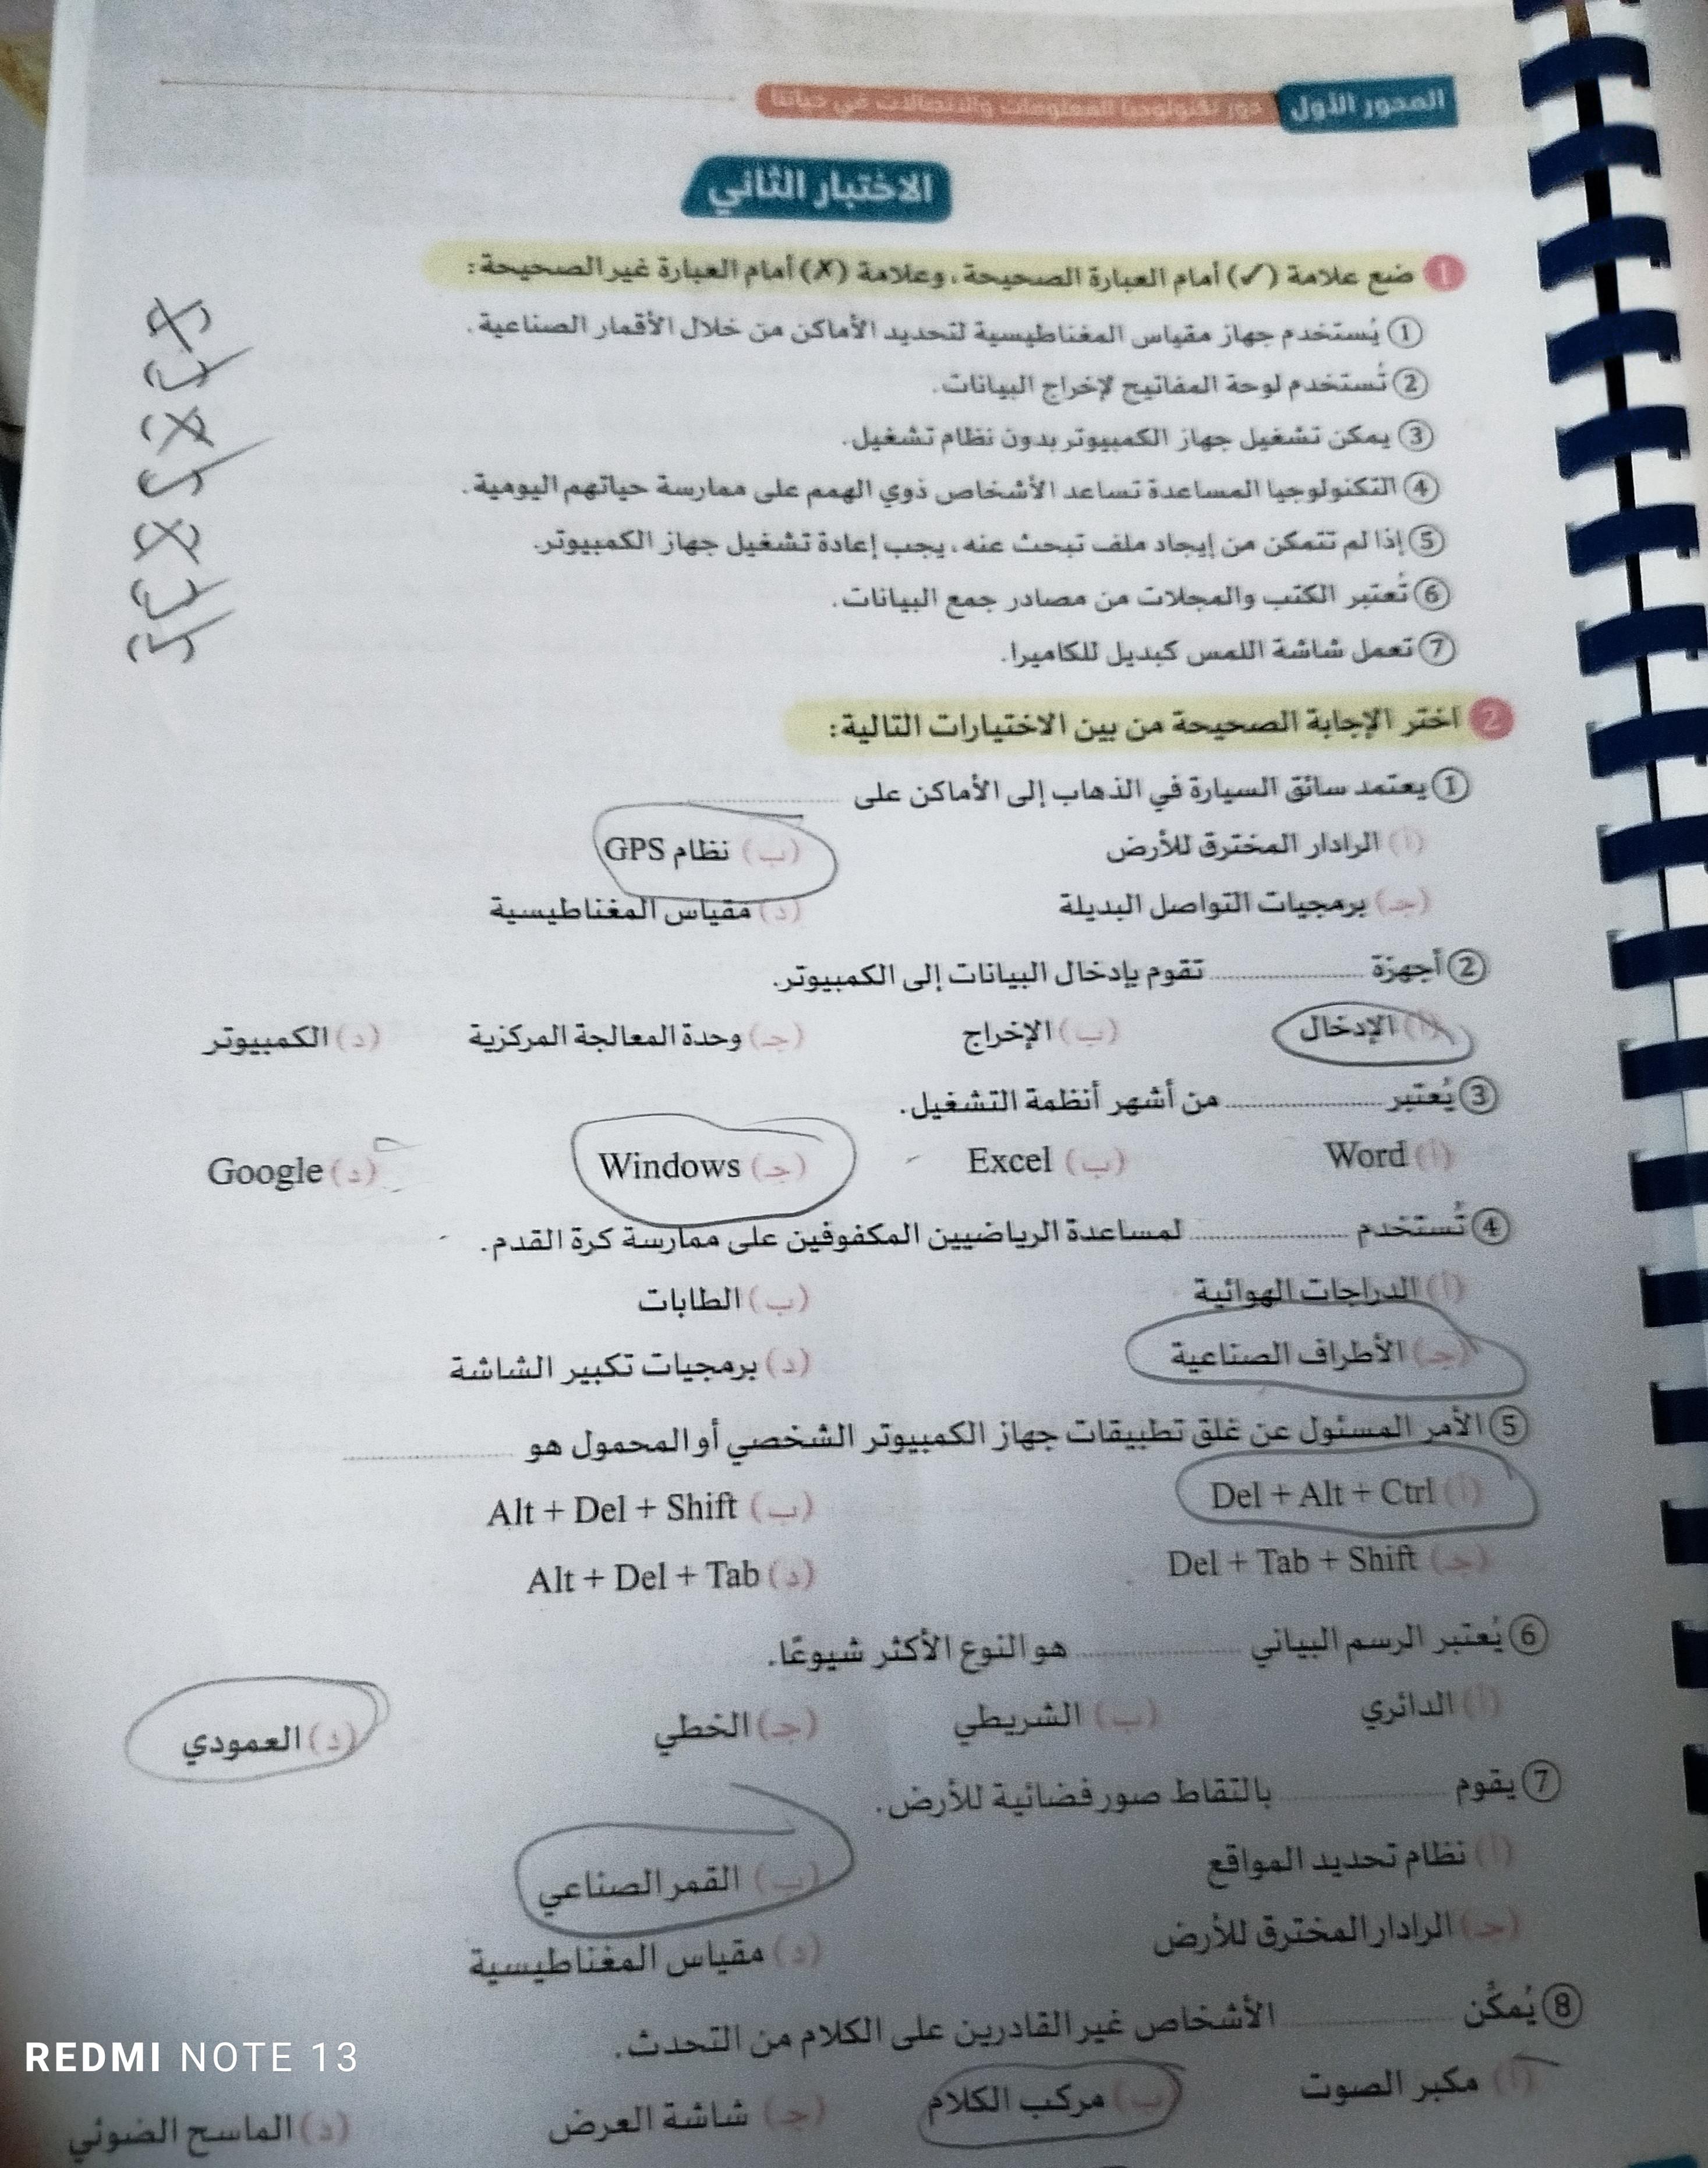 المحور الأول دور تكنولوجيا المعلومات والاتصالات في حياتنا
الاختبار الثاني
1 ضع علامة (✓) أمام العبارة الصحيحة، وعلامة (✗) أمام العبارة غير الصحيحة:
① يُستخدم جهاز مقياس المغناطيسية لتحديد الأماكن من خلال الأقمار الصناعية. (✗)
② تُستخدم لوحة المفاتيح لإخراج البيانات. (✓)
③ يمكن تشغيل جهاز الكمبيوتر بدون نظام تشغيل. (✗)
④ التكنولوجيا المساعدة تساعد الأشخاص ذوي الهمم على ممارسة حياتهم اليومية. (✓)
⑤ إذا لم تتمكن من إيجاد ملف تبحث عنه، يجب إعادة تشغيل جهاز الكمبيوتر. (✗)
⑥ تُعتبر الكتب والمجلات من مصادر جمع البيانات. (✓)
⑦ تعمل شاشة اللمس كبديل للكاميرا. (✓)
2 اختر الإجابة الصحيحة من بين الاختيارات التالية:
① يعتمد سائق السيارة في الذهاب إلى الأماكن على ..........
(أ) الرادار المخترق للأرض (ب) نظام GPS
(جـ) برمجيات التواصل البديلة (د) مقياس المغناطيسية
② أجهزة .......... تقوم بإدخال البيانات إلى الكمبيوتر.
(أ) الإدخال (ب) الإخراج (جـ) وحدة المعالجة المركزية (د) الكمبيوتر
③ يُعتبر .......... من أشهر أنظمة التشغيل.
(أ) Word (ب) Excel (جـ) Windows (د) Google
④ تُستخدم .......... لمساعدة الرياضيين المكفوفين على ممارسة كرة القدم.
(أ) الدراجات الهوائية (ب) الطابات
(جـ) الأطراف الصناعية (د) برمجيات تكبير الشاشة
⑤ الأمر المسئول عن غلق تطبيقات جهاز الكمبيوتر الشخصي أو المحمول هو ..........
(أ) Del + Alt + Ctrl (ب) Alt + Del + Shift
(جـ) Del + Tab + Shift (د) Alt + Del + Tab
⑥ يُعتبر الرسم البياني .......... هو النوع الأكثر شيوعًا.
(أ) الدائري (ب) الشريطي (جـ) الخطي (د) العمودي
⑦ يقوم .......... بالتقاط صور فضائية للأرض.
(أ) نظام تحديد المواقع (ب) القمر الصناعي
(جـ) الرادار المخترق للأرض (د) مقياس المغناطيسية
⑧ يُمكّن .......... الأشخاص غير القادرين على الكلام من التحدث.
(أ) مكبر الصوت (ب) مركب الكلام (جـ) شاشة العرض (د) الماسح الضوئي
REDMI NOTE 13